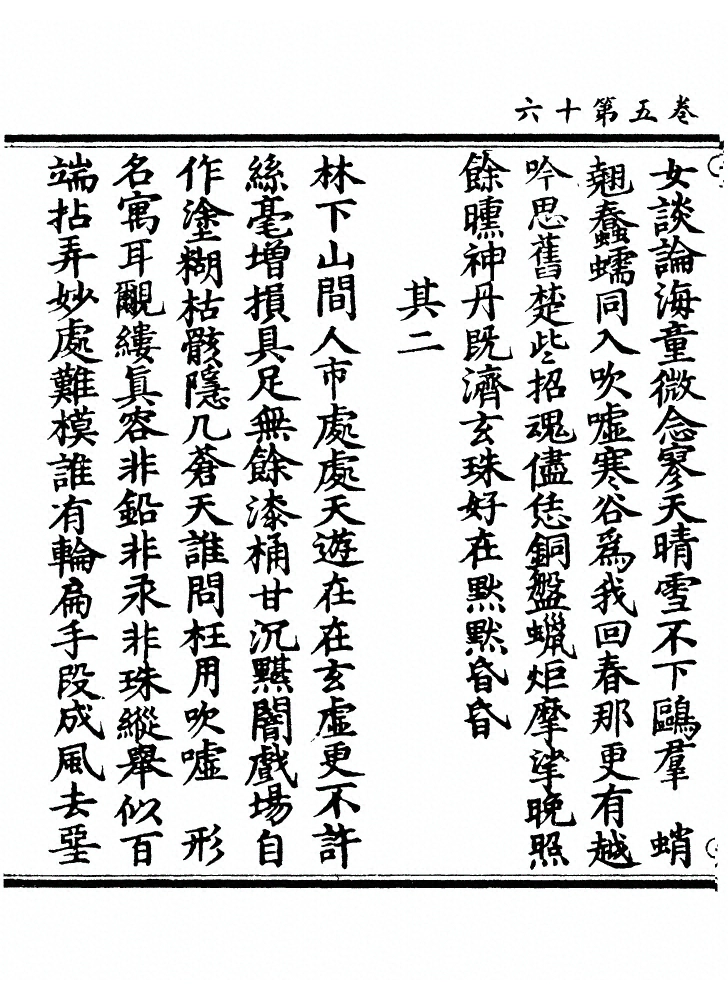 卷五第十六
女談論海童微念寥天晴雪不下鷗羣　蛸
翹蠢蠕同入吹噓寒谷爲我回春那更有越
吟思舊楚些招魂儘恁銅盤蠟炬摩挲晚照
餘曛神丹既濟玄珠好在默默昏昏
其二
林下山間人市處處天遊在在玄虛更不許
絲毫增損具足無餘漆桶甘沉黮闇戲場自
作塗糊枯骸隱几蒼天誰問枉用吹噓　形
名寓耳覼縷眞容非鉛非汞非珠縱舉似百
端拈弄妙處難模誰有輪扁手段成風去堊